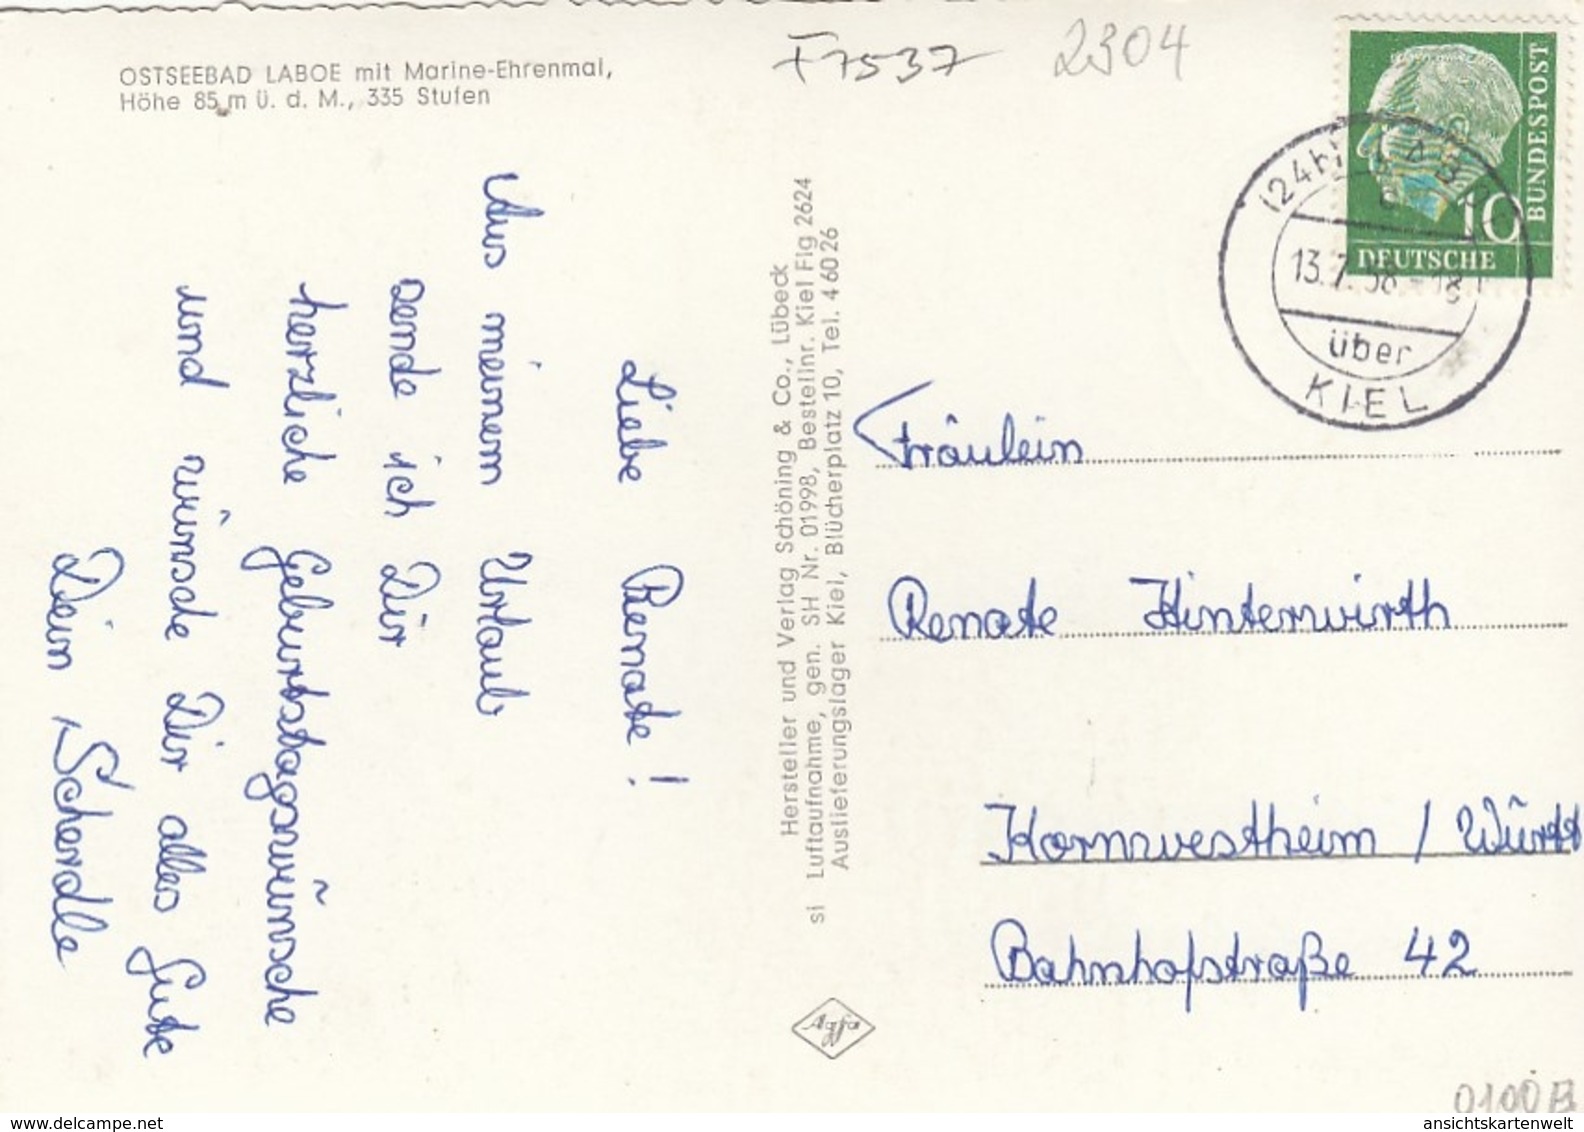 OSTSEEBAD LABOE mit Marine-Ehrenmal,
Höhe 85 m ü. d. M., 335 Stufen
F7537
2304
BUNDESPOST
10
DEUTSCHE
(24b) LABOE
13.7.58-18
über
KIEL
Liebe Renate!
Aus meinem Urlaub
sende ich Dir
herzliche Geburtstagswünsche
und wünsche Dir alles Gute
Dein Scherdle
Hersteller und Verlag Schöning & Co., Lübeck
si Luftaufnahme, gen. SH Nr. 01998, Bestellnr. Kiel Flg 2624
Auslieferungslager Kiel, Blücherplatz 10, Tel. 4 60 26
Agfa
Fräulein
Renate Hinterwirth
Kornwestheim / Württ
Bahnhofstraße 42
ansichtskartenwelt